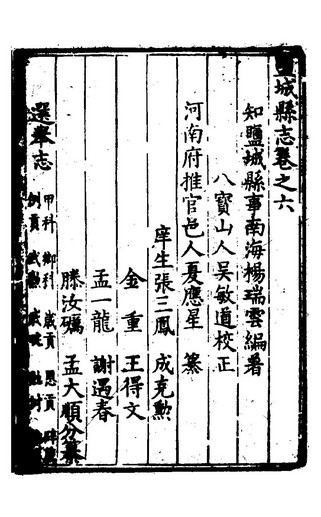 鹽城縣志卷之六
知鹽城縣事南海楊瑞雲編著
八寶山人吳敏道校正
河南府推官邑人夏應星 纂
庠生張三鳳 成克勲
金重 王得文
孟一龍 謝遇春
滕汝礪 孟大順分纂
選舉志
甲科 鄉科 歲貢 恩貢
例貢 武勳